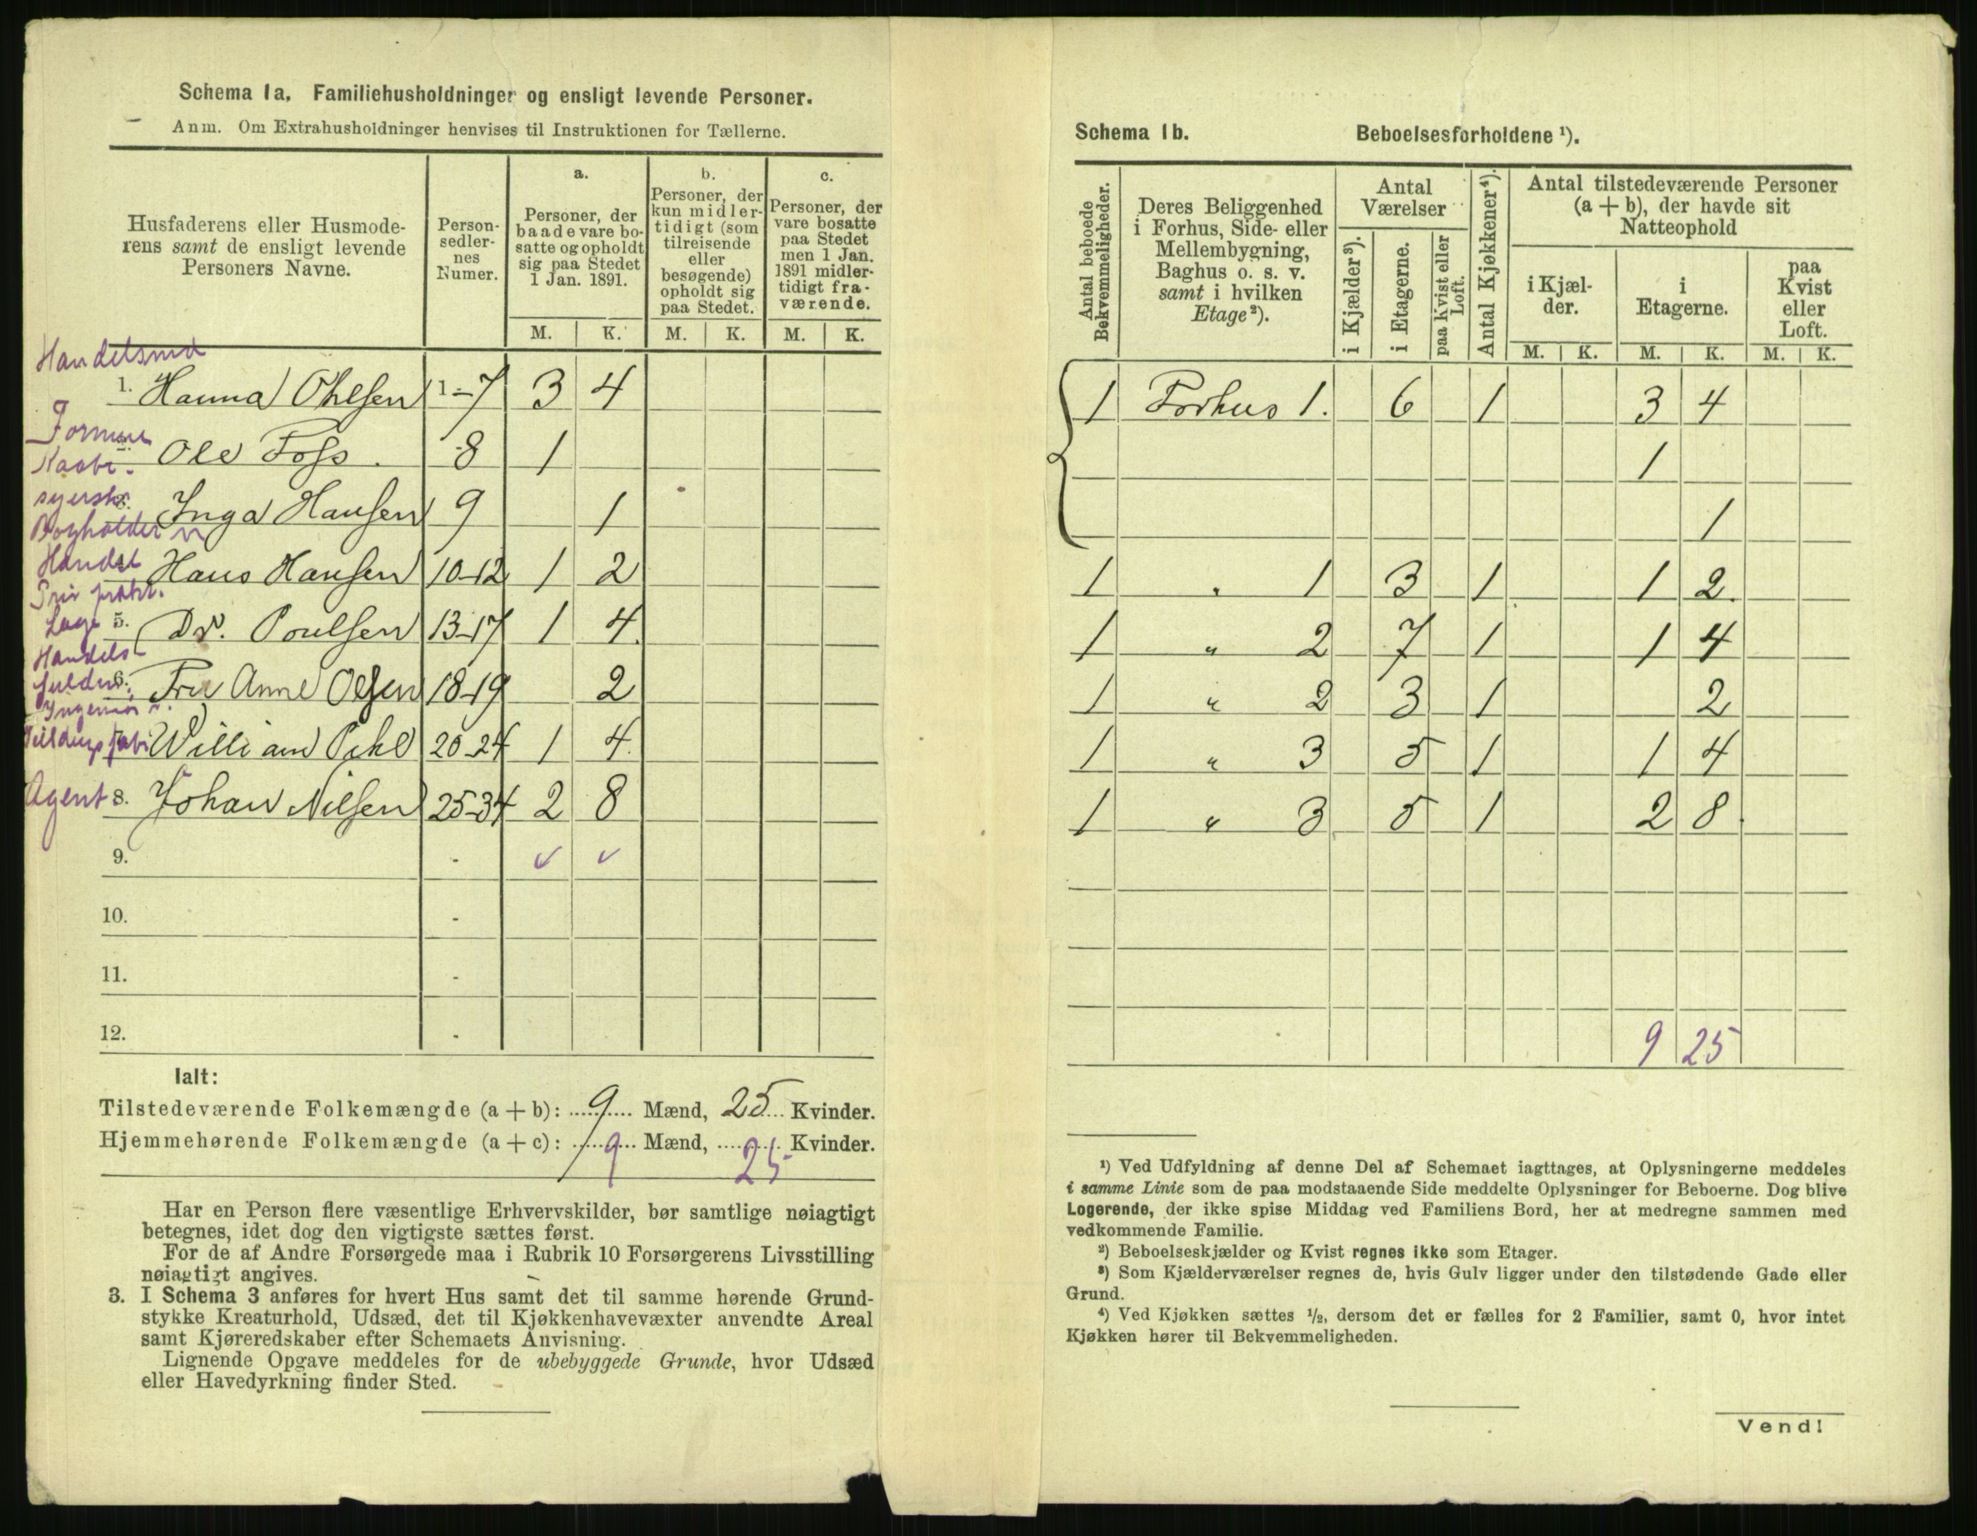 Schema 1a. Familiehusholdninger og ensligt levende Personer.
Anm. Om Extrahusholdninger henvises til Instruktionen for Tællerne.
Husfaderens eller Husmoderens samt de ensligt levende Personers Navne.
Personsedlernes Numer.
a. Personer, der baade vare bosatte og opholdt sig paa Stedet 1 Jan. 1891.
b. Personer, der kun midlertidigt (som tilreisende eller besøgende) opholdt sig paa Stedet.
c. Personer, der vare bosatte paa Stedet men 1 Jan. 1891 midlertidigt fraværende.
M. K. M. K. M. K.
Handelsmd
1. Hanna Ohlsen 1-7 3 4
Ole Foss. 8 1
syersk
Inga Hansen 9 1
Handel
Hans Hansen 10-12 1 2
5. Dr. Poulsen 13-17 1 4
Handels
6. Fru Anne Olsen 18-19 2
William Pihl 20-24 1 4
Agent 8. Johan Nilsen 25-34 2 8
9. - ✓ ✓
10. -
11. -
12. -
Ialt:
Tilstedeværende Folkemængde (a+b): 9 Mænd, 25 Kvinder.
Hjemmehørende Folkemængde (a+c): 9 Mænd, 25 Kvinder.
Har en Person flere væsentlige Erhvervskilder, bør samtlige nøiagtigt
betegnes, idet dog den vigtigste sættes først.
For de af Andre Forsørgede maa i Rubrik 10 Forsørgerens Livsstilling
nøiagtigt angives.
3. I Schema 3 anføres for hvert Hus samt det til samme hørende Grund-
stykke Kreaturhold, Udsæd, det til Kjøkkenhavevæxter anvendte Areal
samt Kjøreredskaber efter Schemaets Anvisning.
Lignende Opgave meddeles for de ubebyggede Grunde, hvor Udsæd
eller Havedyrkning finder Sted.
Schema 1b. Beboelsesforholdene ¹).
Antal beboede Bekvemmeligheder.
Deres Beliggenhed i Forhus, Side- eller Mellembygning, Baghus o. s. v. samt i hvilken Etage²).
Antal Værelser
i Kjælder³).
i Etagerne.
paa Kvist eller Loft.
Antal Kjøkkener⁴).
Antal tilstedeværende Personer (a + b), der havde sit Natteophold
i Kjælder.
i Etagerne.
paa Kvist eller Loft.
M. K. M. K. M. K.
1 Forhus 1. 6 1 3 4
1
1
1 " 1 3 1 1 2
1 " 2 7 1 1 4
1 " 2 3 1 2
1 " 3 5 1 1 4
1 " 3 5 1 2 8
9 25
¹) Ved Udfyldning af denne Del af Schemaet iagttages, at Oplysningerne meddeles
i samme Linie som de paa modstaaende Side meddelte Oplysninger for Beboerne. Dog blive
Logerende, der ikke spise Middag ved Familiens Bord, her at medregne sammen med
vedkommende Familie.
²) Beboelseskjælder og Kvist regnes ikke som Etager.
³) Som Kjælderværelser regnes de, hvis Gulv ligger under den tilstødende Gade eller
Grund.
⁴) Ved Kjøkken sættes ½, dersom det er fælles for 2 Familier, samt 0, hvor intet
Kjøkken hører til Bekvemmeligheden.
Vend!